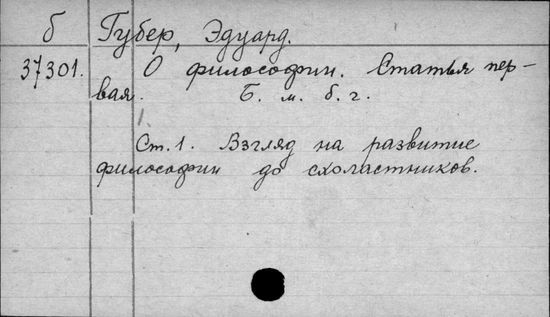 б Губер, Эдуард.
37301. О философии. Статья пер-
вая. Б. м. б. г.
1.
Ст. 1. Взгляд на развитие
философии до схоластников.